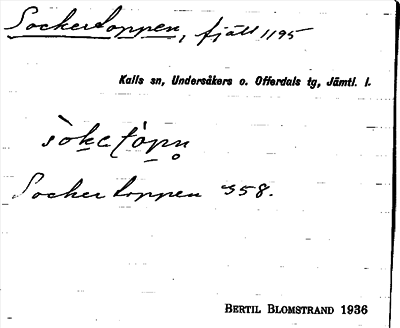 Sockertoppen, fjäll 1195
Kalls sn, Undersåkers o. Offerdals tg, Jämtl. l.
Sockertoppen 358.
BERTIL BLOMSTRAND 1936